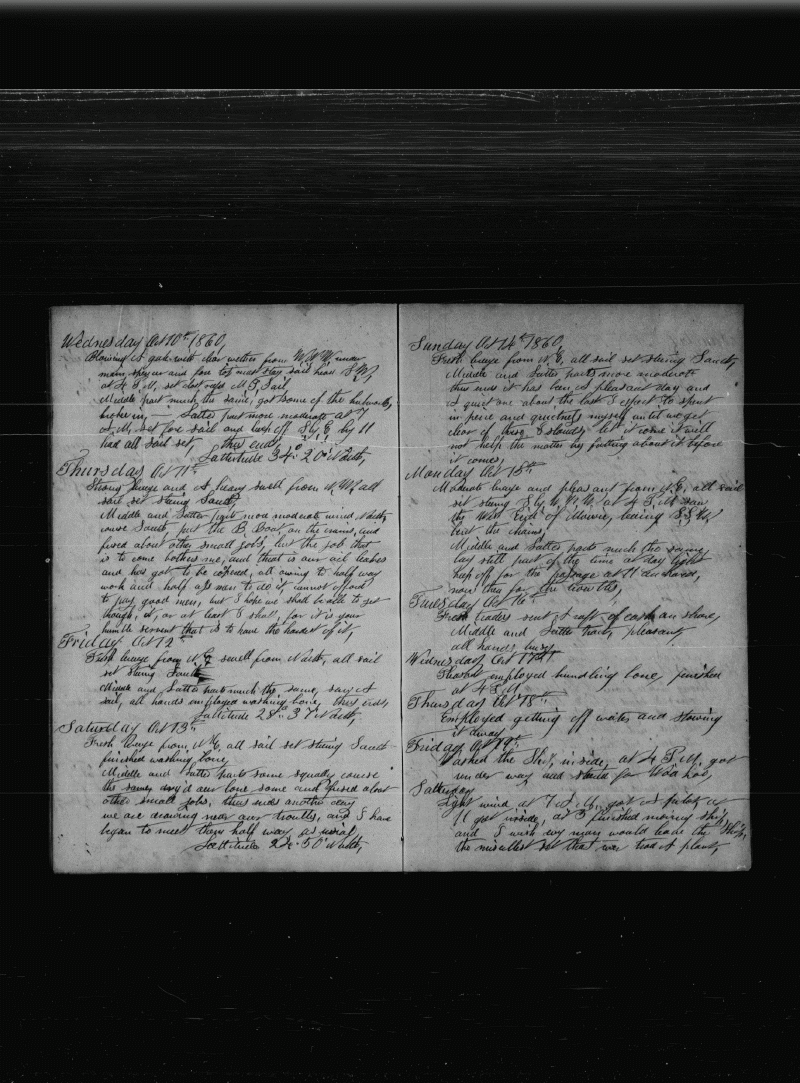 Wednesday Oct 10th 1860,
Blowing A gale with clear wether from W.N.W, under
main spencer and fore top mast stay sail head S.W,
at 4 P.M, set close reefs M. T. Sail
Middle part much the same, got some of the bulworks,
broke in, — Latter part more moderate at 7
A M, set fore sail and kept off S by E by 11
had all sail set, thus ends,
Lattertude 34° 20' North,
Thursday Oct 11th
Strong breeze and A heavy swell from N.W, all
sail set stering South,
Middle and Latter part more moderate wind North,
course South put the B. Boat, on the crains, and
fused about other small jobs, but the job that
is to come bothers me, and that is our oil leakes
and has got to be coopered, all owing to half way
work and half ass men to do it, cannot afford
to pay good men, but I hope we shall be able to get
though, it, or at least I shal, for it is your
humble servent that is to have the hardest of it,
Friday Oct 12th
Fresh breeze from N.E swell from North, all sail
set stering South
Middle and Latter parts much the same, saw A
sail, all hands employed washing bone, thus ends,
Lattertude 28° 37' North,
Saturday Oct 13th
Fresh breeze from N.E, all sail set stering South
finished washing bone
Middle and Latter parts some squaly course
the same, dry'd our bone some and fused about
other small jobs, thus ends another day
we are drawing near our troubles, and I have
began to meet them half way as usial,
Lattertude 24° 50' North,
Sunday Oct 14th 1860,
Fresh breeze from N.E, all sail set stering South,
Middle and Latter parts more moderate
thus ends it has been A pleasant day and
A quiet one about the last I expect to spent
in peace and quietness myself until we get
clear of these Islands, let it come it will
not help the matter by fretting about it before
it comes,
Monday Oct 15th
Moderate breeze and pleasant from N.E, all sail
set stering S by W, at 4 P.M. saw
the West End of Mowie, bearing S.S.W,
bent the chains,
Middle and Latter parts much the same,
lay still part of the time at day light
kep off for the passage at 11 anchored,
now then for the troubles,
Tuesday Oct 16th
Fresh trades sent A raft of cask on shore,
Middle and Latter parts, pleasant,
all hands busy,
Wednesday Oct 17th
Pleasant employed bundling bone, finished
at 4 P.M
Thursday Oct 18th
Employed getting off water and stowing
it away
Friday, Oct 19th
Washed the Ship, inside, at 4 P.M, got
under way and steard for Woa hoo,
Satturday
Light wind at 7 A.M, got A pilot at
11 got inside, at 3 finished mooring ship,
and I wish every man would leave the Ship,
the misrablest set that ever trod A plank,